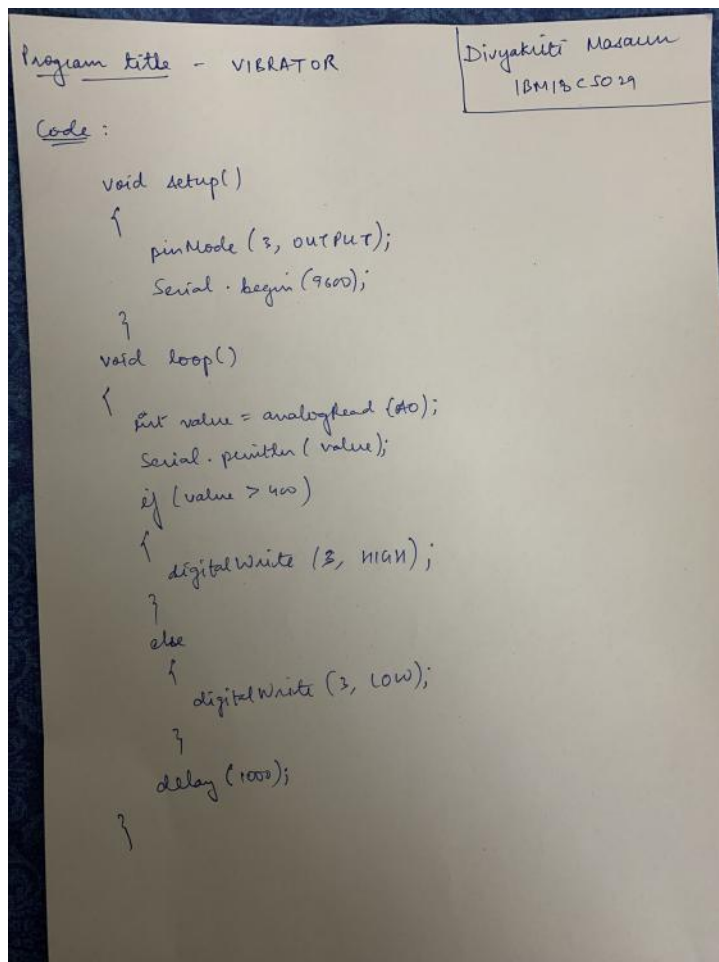 Program title - VIBRATOR
Divyakriti Masaun
1BM18CS029
Code :
void setup()
{
pinMode (3, OUTPUT);
Serial . begin (9600);
}
void loop()
{
int value = analogRead (A0);
Serial . println ( value);
if (value > 400)
{
digitalWrite (3, HIGH) ;
}
else
{
digitalWrite (3, LOW);
}
delay (1000);
}